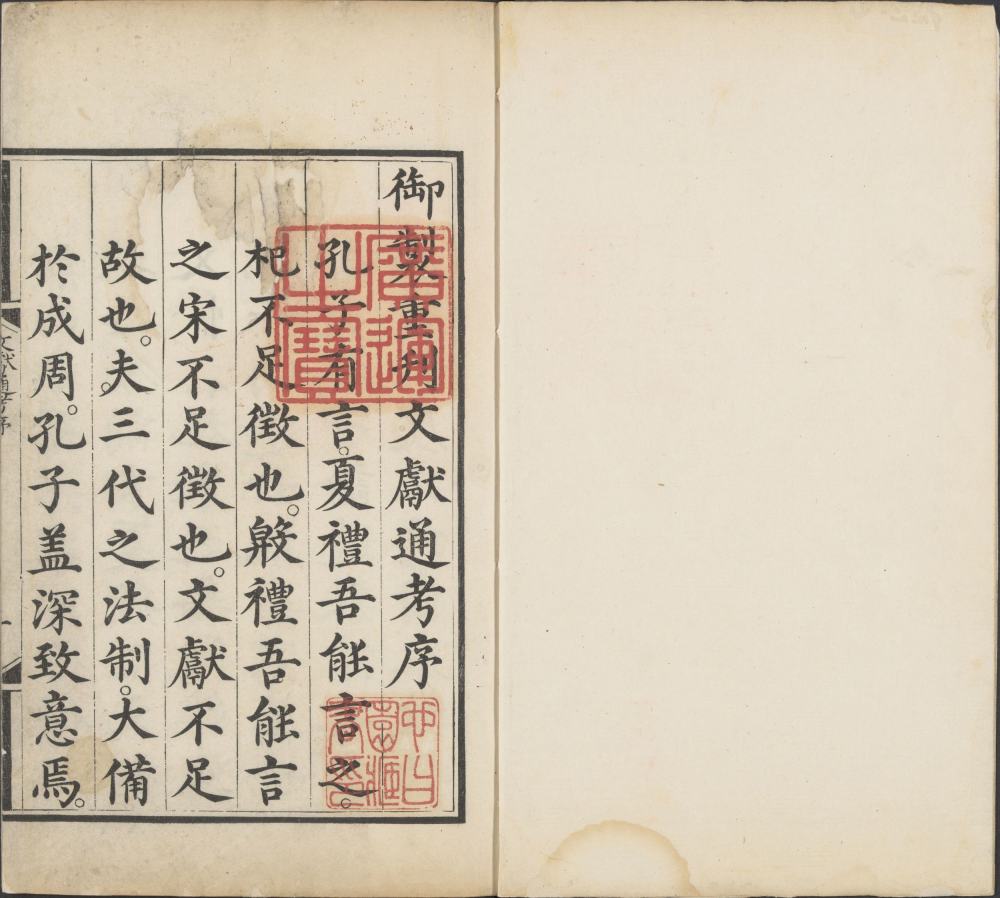 御製重刋文獻通考序
孔子有言。夏禮吾能言之。
杞不足徵也。殷禮吾能言
之宋不足徵也。文獻不足
故也。夫三代之法制。大備
於成周。孔子盖深致意焉。
文獻通考序
廣運之寶